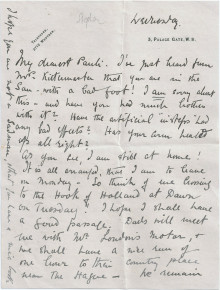 Wednesday
5, PALACE GATE, W.8.
My dearest
I've just heard from
that you are in the
San. with a bad foot! I am sorry about
this - and have you had much bother
with it? Have the artificial insteps had
any bad effects? Has your turned
up all right?
As you see, I am still at home.
It is all arranged that I am to leave
on Monday - So think of me crossing
to the Hook of Holland at Dawn
on Tuesday. I hope I shall have
a good passage. Dads will meet
me with Mr London's Motor, &
we shall have a nice run of
one hour to their country place
near the Hague - We remain
I hope you are not a